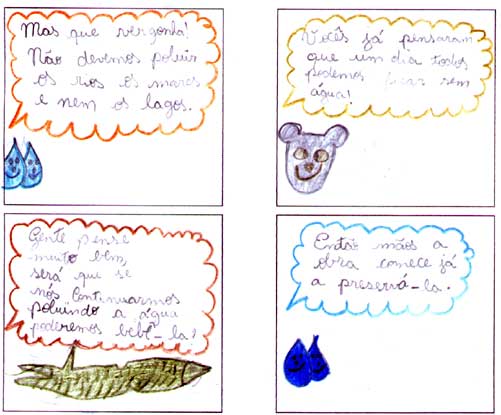 Mas que vergonha!
Não devemos poluir
os rios os mares
e nem os lagos.
Vocês já pensaram
que um dia todos
podemos ficar sem
água!
Gente pense
muito bem
será que se
nós continuarmos
poluindo a água
poderemos bebê-la!
Então mãos a
obra comece já
a preservá-la.